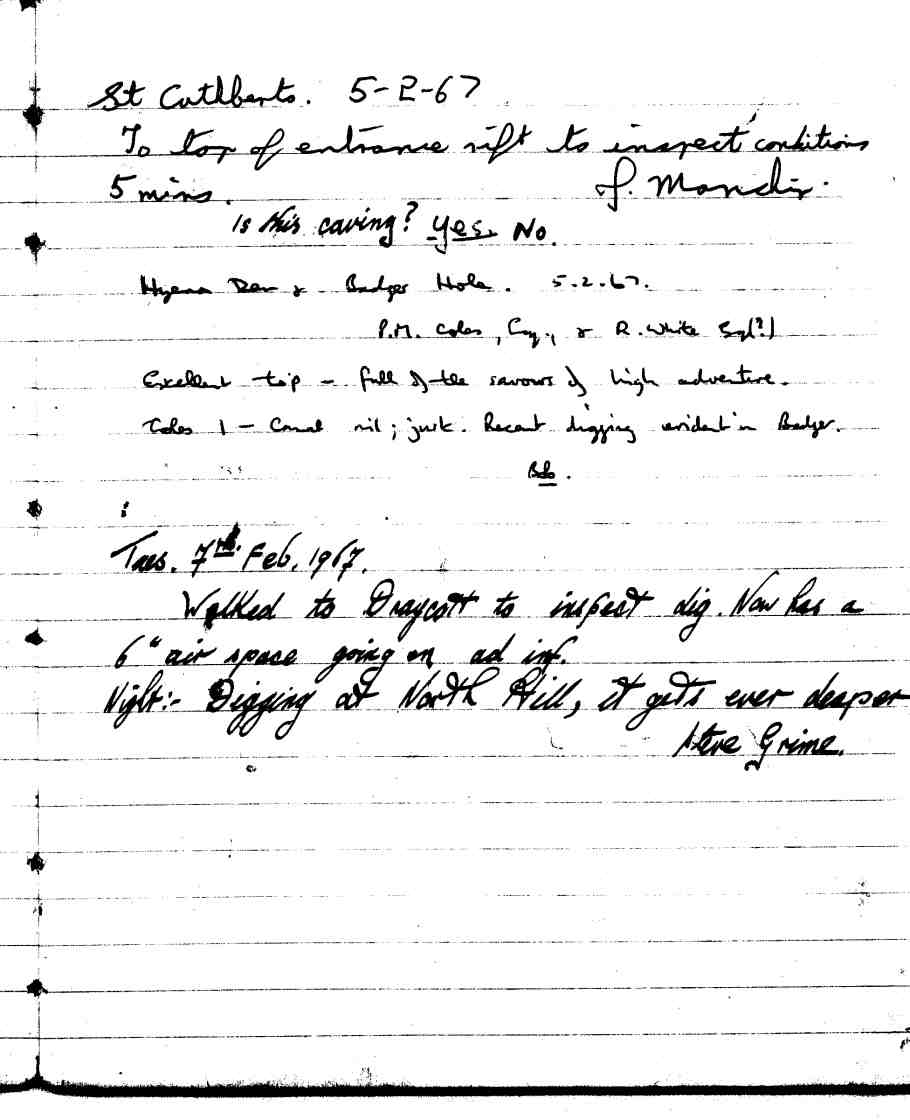 St Cuthberts. 5-2-67
To top of entrance rift to inspect conditions
5 mins.
Is this caving? Yes. No.
Hyena Den & Badger Hole. 5.2.67.
P.M. Coles, Esq., & R. White Esq(?)
Excellent trip - full of the savours of high adventure.
Coles 1 - nil; just. Recent digging evident in Badger.
Bob.
Tues. 7th. Feb. 1967.
Walked to Draycott to inspect dig. Now has a
6" air space going on ad inf.
Night:- Digging at North Hill, it gets ever deeper
Steve Grime.